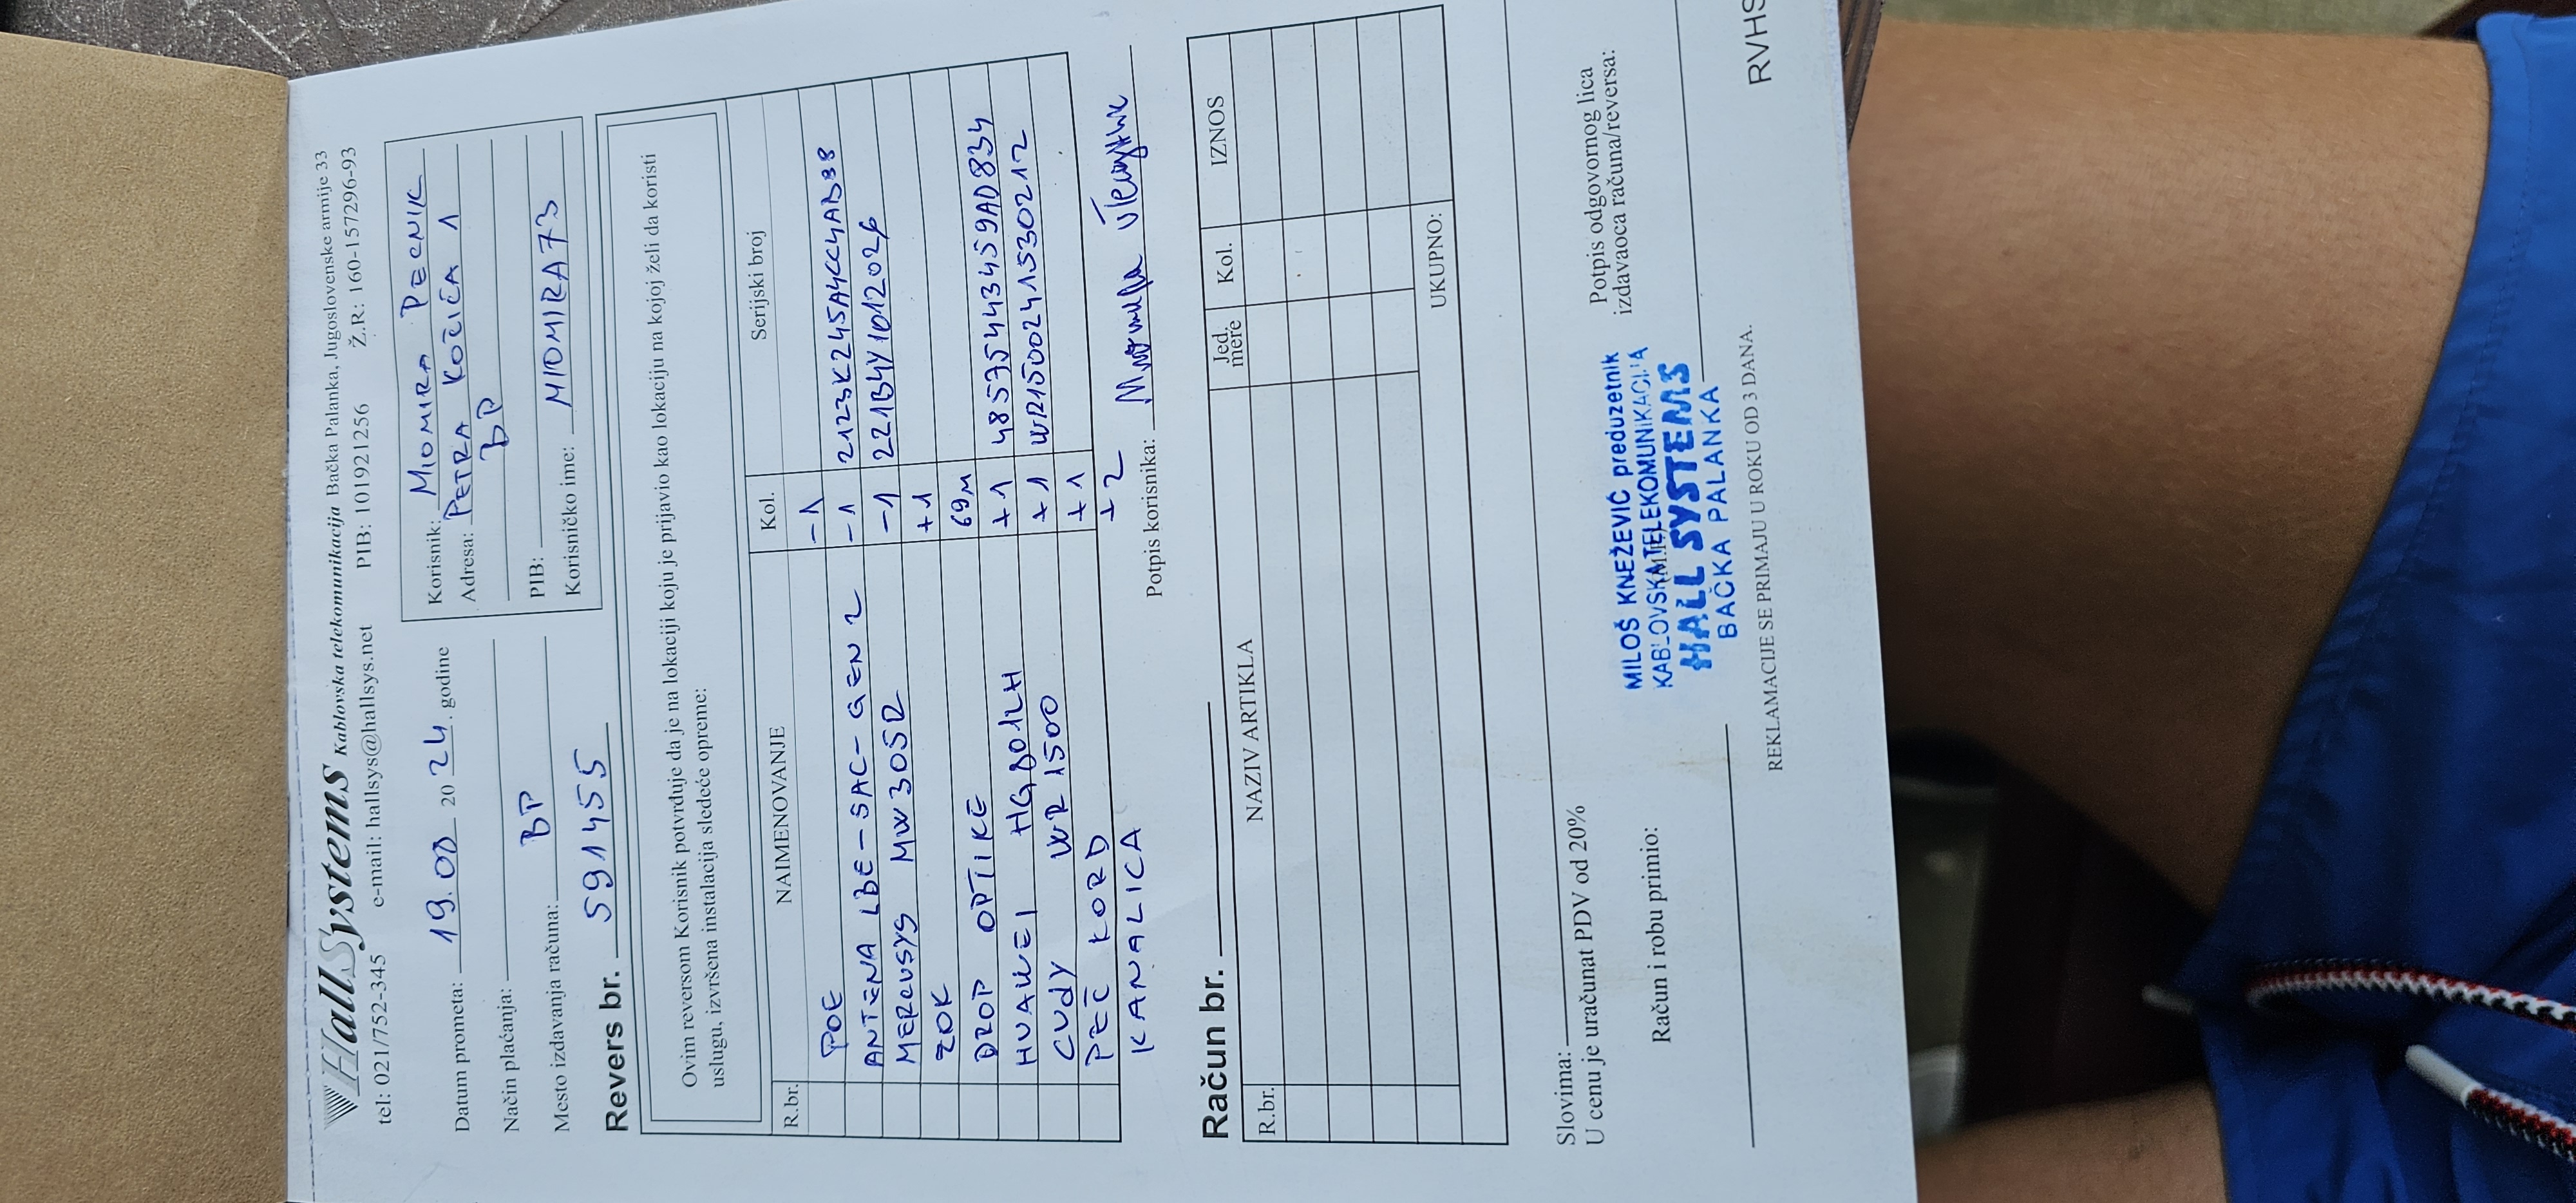 HallSystems Kablovska telekomunikacija Bačka Palanka, Jugoslovenske armije 33
tel: 021/752-345 e-mail: hallsys@hallsys.net PIB: 101921256 Ž.R.: 160-157296-93
Datum prometa: 19.08 2024. godine
Način plaćanja:
Mesto izdavanja računa: BP
Korisnik: MIOMIRA PECNIK
Adresa: PETRA KOČIĆA 1
BP
PIB:
Korisničko ime: MIOMIRA73
Revers br. 591455
Ovim reversom Korisnik potvrđuje da je na lokaciji koju je prijavio kao lokaciju na kojoj želi da koristi
uslugu, izvršena instalacija sledeće opreme:
R.br. NAIMENOVANJE Kol. Serijski broj
POE -1
ANTENA LBE-5AC-GEN 2 -1 2123K245A4CC4AB38
MERCUSYS MW305R -1 221B4Y1012026
ZOK +1
DROP OPTIKE 69M
HUAWEI HG8012H +1 48575443459AD834
CUDY WR1500 +1 WR15002415530212
PEČ KORD +1
KANALICA +2
Potpis korisnika:
Račun br.
R.br. NAZIV ARTIKLA Jed. mere Kol. IZNOS
UKUPNO:
Slovima:
U cenu je uračunat PDV od 20%
Račun i robu primio:
Potpis odgovornog lica
izdavaoca računa/reversa:
MILOŠ KNEŽEVIĆ preduzetnik
KABLOVSKA TELEKOMUNIKACIJA
HALL SYSTEMS
BAČKA PALANKA
REKLAMACIJE SE PRIMAJU U ROKU OD 3 DANA.
RVHS